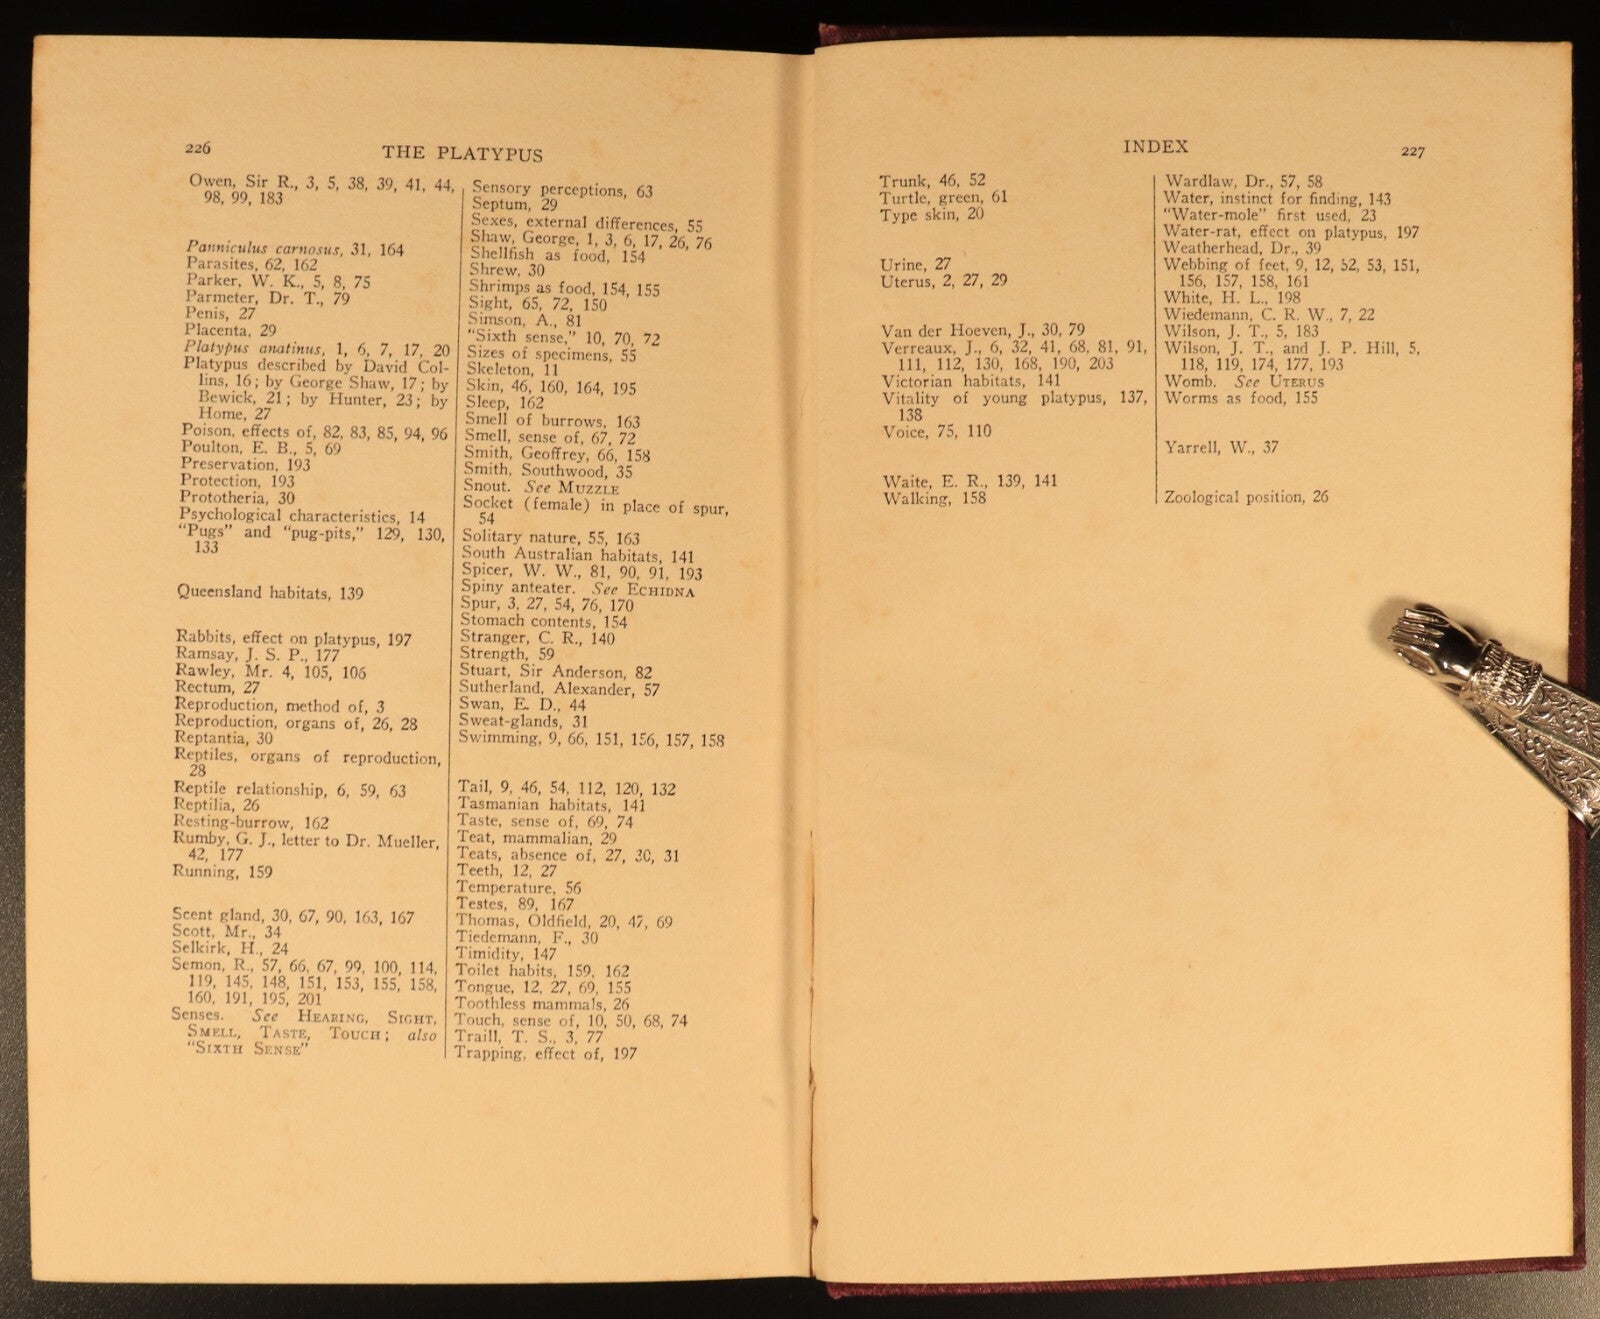 226
THE PLATYPUS
Owen, Sir R., 3, 5, 38, 39, 41, 44,
98, 99, 183
Panniculus carnosus, 31, 164
Parasites, 62, 162
Parker, W. K., 5, 8, 75
Parmeter, Dr. T., 79
Penis, 27
Placenta, 29
Platypus anatinus, 1, 6, 7, 17, 20
Platypus described by David Col-
lins, 16; by George Shaw, 17; by
Bewick, 21; by Hunter, 23; by
Home, 27
Poison, effects of, 82, 83, 85, 94, 96
Poulton, E. B., 5, 69
Preservation, 193
Protection, 193
Prototheria, 30
Psychological characteristics, 14
"Pugs" and "pug-pits," 129, 130,
133
Queensland habitats, 139
Rabbits, effect on platypus, 197
Ramsay, J. S. P., 177
Rawley, Mr. 4, 105, 106
Rectum, 27
Reproduction, method of, 3
Reproduction, organs of, 26, 28
Reptantia, 30
Reptiles, organs of reproduction,
28
Reptile relationship, 6, 59, 63
Reptilia, 26
Resting-burrow, 162
Rumby, G. J., letter to Dr. Mueller,
42, 177
Running, 159
Scent gland, 30, 67, 90, 163, 167
Scott, Mr., 34
Selkirk, H., 24
Semon, R., 57, 66, 67, 99, 100, 114,
119, 145, 148, 151, 153, 155, 158,
160, 191, 195, 201
Senses. See HEARING, SIGHT,
SMELL, TASTE, TOUCH; also
"SIXTH SENSE"
Sensory perceptions, 63
Septum, 29
Sexes, external differences, 55
Shaw, George, 1, 3, 6, 17, 26, 76
Shellfish as food, 154
Shrew, 30
Shrimps as food, 154, 155
Sight, 65, 72, 150
Simson, A., 81
"Sixth sense," 10, 70, 72
Sizes of specimens, 55
Skeleton, 11
Skin, 46, 160, 164, 195
Sleep, 162
Smell of burrows, 163
Smell, sense of, 67, 72
Smith, Geoffrey, 66, 158
Smith, Southwood, 35
Snout. See MUZZLE
Socket (female) in place of spur,
54
Solitary nature, 55, 163
South Australian habitats, 141
Spicer, W. W., 81, 90, 91, 193
Spiny anteater. See ECHIDNA
Spur, 3, 27, 54, 76, 170
Stomach contents, 154
Stranger, C. R., 140
Strength, 59
Stuart, Sir Anderson, 82
Sutherland, Alexander, 57
Swan, E. D., 44
Sweat-glands, 31
Swimming, 9, 66, 151, 156, 157, 158
Tail, 9, 46, 54, 112, 120, 132
Tasmanian habitats, 141
Taste, sense of, 69, 74
Teat, mammalian, 29
Teats, absence of, 27, 30, 31
Teeth, 12, 27
Temperature, 56
Testes, 89, 167
Thomas, Oldfield, 20, 47, 69
Tiedemann, F., 30
Timidity, 147
Toilet habits, 159, 162
Tongue, 12, 27, 69, 155
Toothless mammals, 26
Touch, sense of, 10, 50, 68, 74
Traill, T. S., 3, 77
Trapping, effect of, 197
INDEX
227
Trunk, 46, 52
Turtle, green, 61
Type skin, 20
Urine, 27
Uterus, 2, 27, 29
Van der Hoeven, J., 30, 79
Verreaux, J., 6, 32, 41, 68, 81, 91,
111, 112, 130, 168, 190, 203
Victorian habitats, 141
Vitality of young platypus, 137,
138
Voice, 75, 110
Waite, E. R., 139, 141
Walking, 158
Wardlaw, Dr., 57, 58
Water, instinct for finding, 143
"Water-mole" first used, 23
Water-rat, effect on platypus, 197
Weatherhead, Dr., 39
Webbing of feet, 9, 12, 52, 53, 151,
156, 157, 158, 161
White, H. L., 198
Wiedemann, C. R. W., 7, 22
Wilson, J. T., 5, 183
Wilson, J. T., and J. P. Hill, 5,
118, 119, 174, 177, 193
Womb. See UTERUS
Worms as food, 155
Yarrell, W., 37
Zoological position, 26